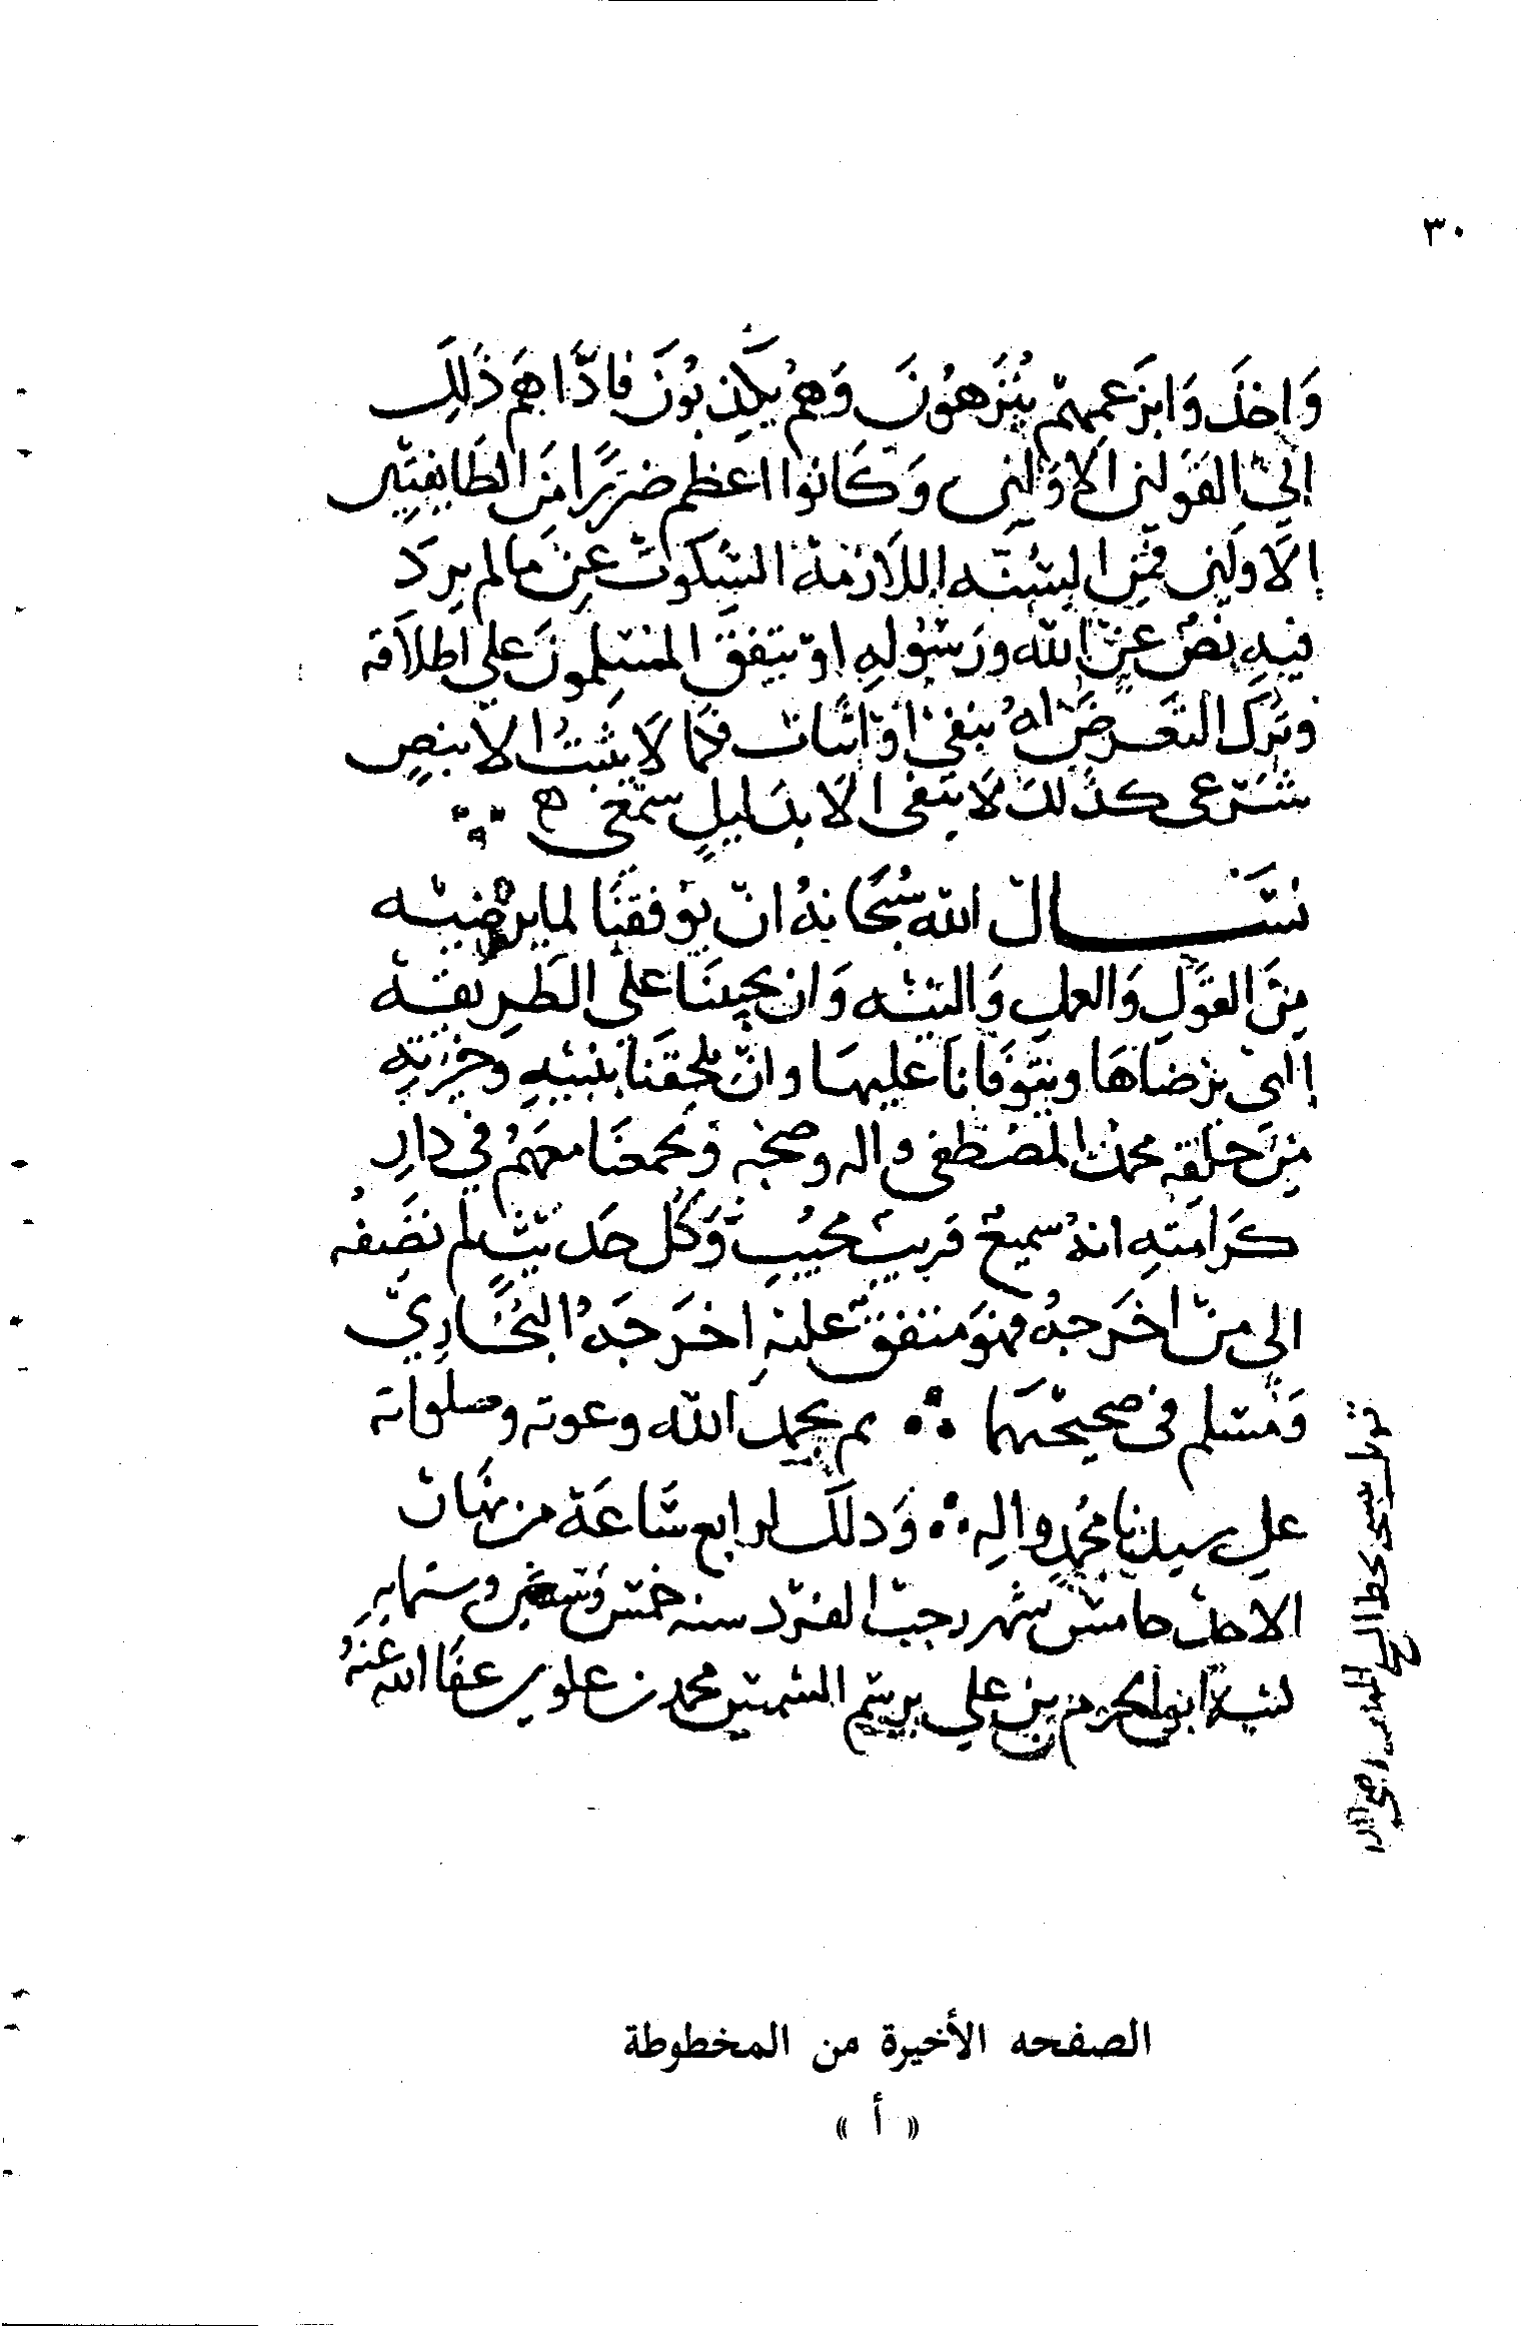 ٣٠
وَاخذ وَا بزعمهم ينزهُونَ وَهُم يكذبُونَ فاذّاهم ذَلِك
الى القولين الاولين وَكَانوا اعظم ضررًا مِنَ الطَايفتين
الاولين فمن السنه اللازمة السكوت عن ما لم يرد
فيهِ نص عن الله ورسُولهِ او يتفق المسلمونَ على اطلاقه
وترك التعرض له بنفى او اثبات فكما لا يثبتُ الا بنصٍ
شرعى كذلك لا ينفى الا بدليلٍ سمعى
نسال الله سُبحانهُ ان يوفقنا لما يرضيه
مِن القول وَالعمل وَالنيه وَان يحيينا على الطَرِيقة
التى يرضاهَا ويتوفانا عليهَا وان يلحقنا بنبيهِ وخيرتهِ
من خلقه محمد المصطفى واله وصحبه وَيجمعنا معهُم في دارِ
كرَامتهِ انهُ سميع قريب مجيب وَكُل حديث لم نضفهُ
الى من اخرجهُ فهوَ متفق عليهِ اخرجَهُ البُخَارِيّ
وَمسلم فى صحيحَيهما ∴ تم بحمد الله وعونه وصلواته
على سيدنا محمدٍ والهِ ∴ وَذلك لرابع سَاعَة من نهَار
الاحد خامس شهر رجب الفرد سنه خمس وَسبعين وستمايه
ابو المكرم بن على بن محمد بن علوى عفَا الله عَنهُ
الصفحه الأخيرة من المخطوطة
« أ »